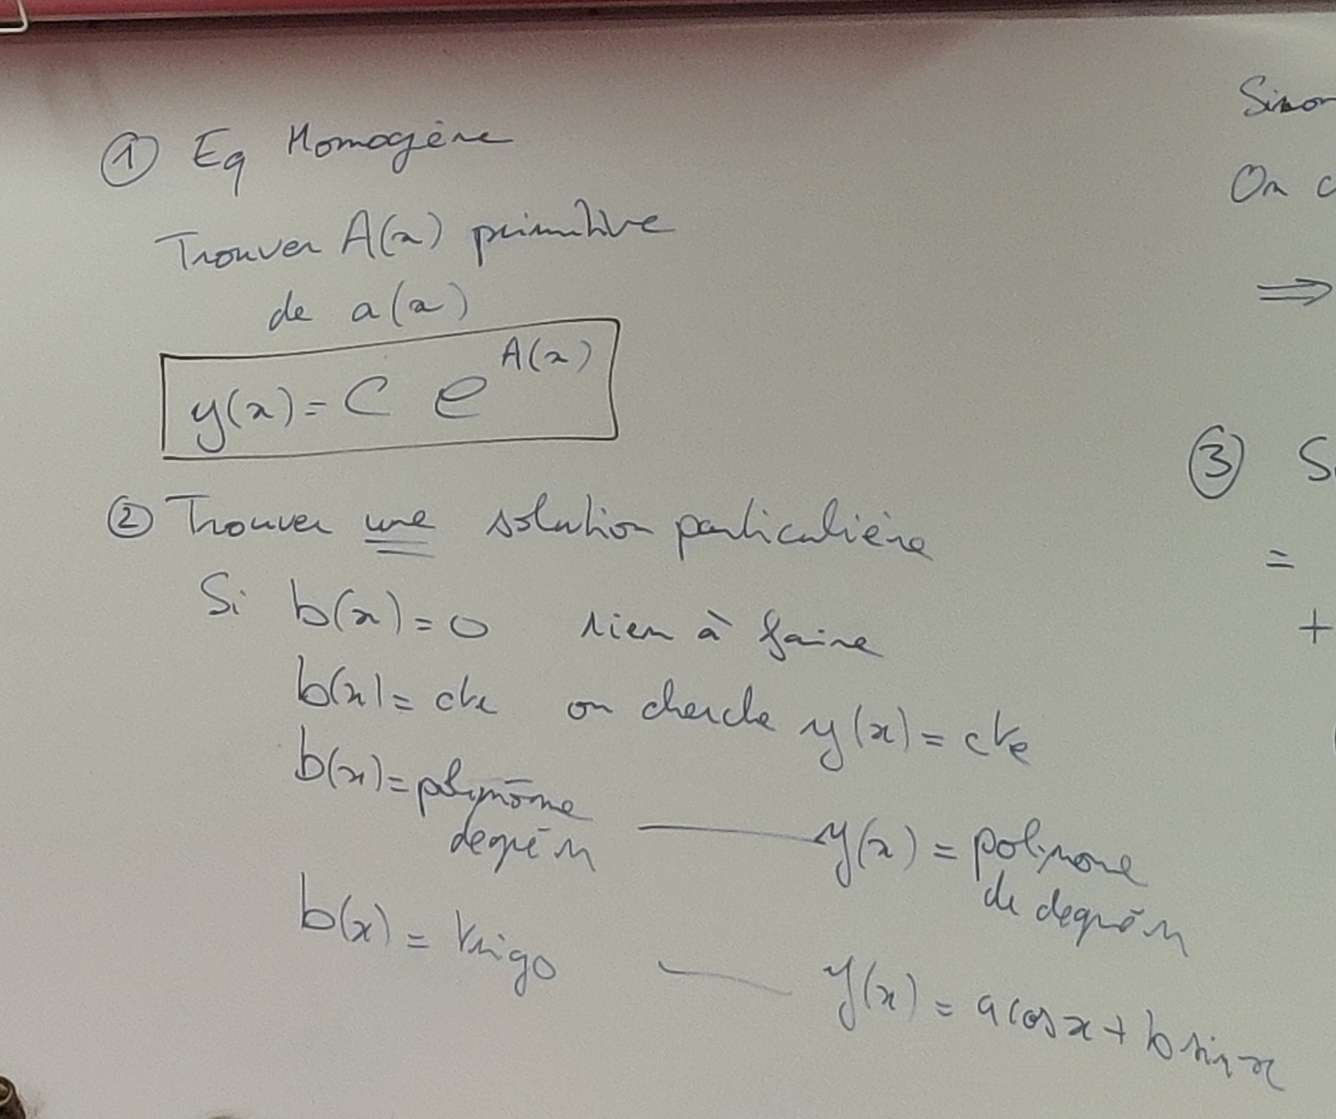 ① Eq Homogène
Trouver A(x) primitive
de a(x)
y(x) = C e^A(x)
② Trouver une solution particulière
Si b(x) = 0 rien à faire
b(x) = cte on cherche y(x) = cte
b(x) = polynōme
degré n
y(x) = polynome
de degré n
b(x) = trigo y(x) = a cos x + b sin x
Sinon
On c
⇒
③ S
=
+